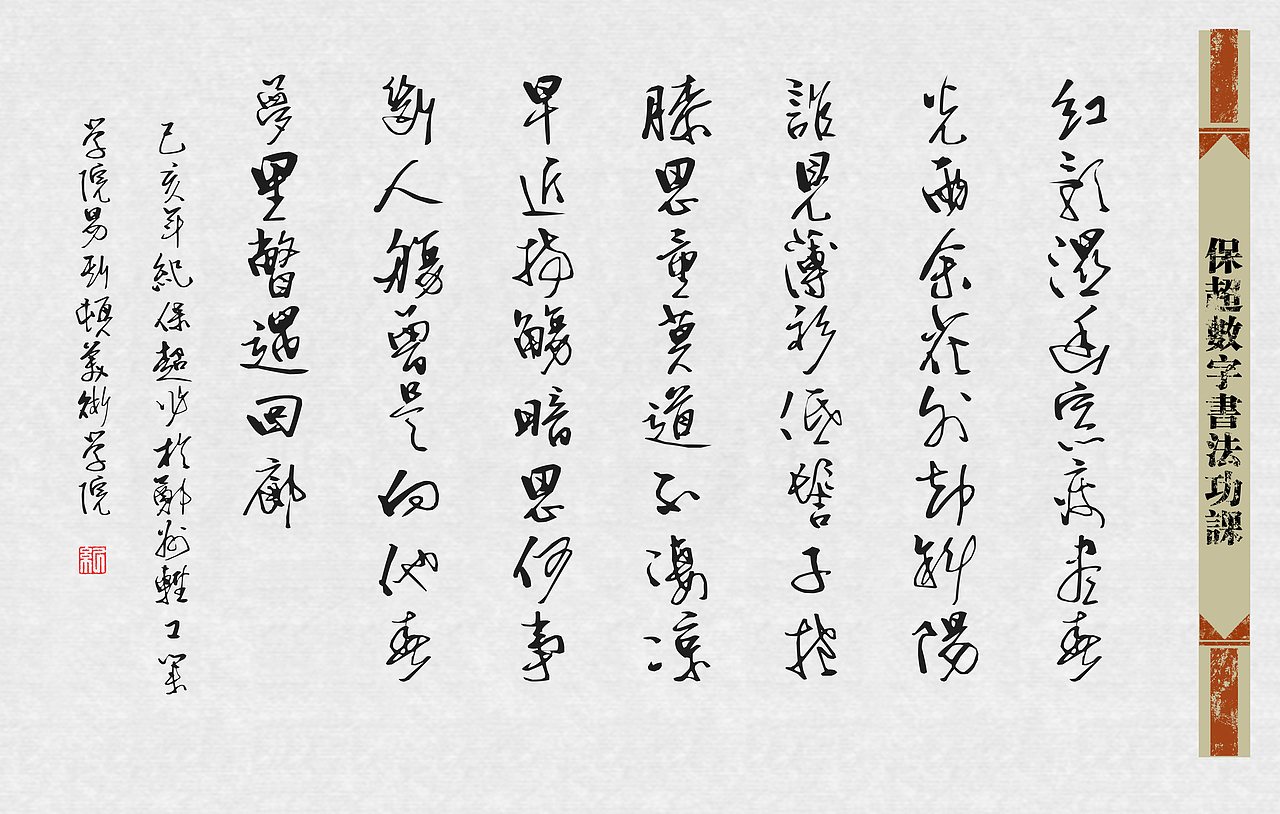 保超數字書法功課
紅影濕幽窓瘦尽春
光雨余花外却斜陽
誰見薄衫低髻子抱
膝思量莫道不凄涼
早近持觴暗思何事
斷人腸曾是向他春
夢里瞥遇回廊
己亥年紀保超书於鄭州輕工業
学院易斯頓美術学院